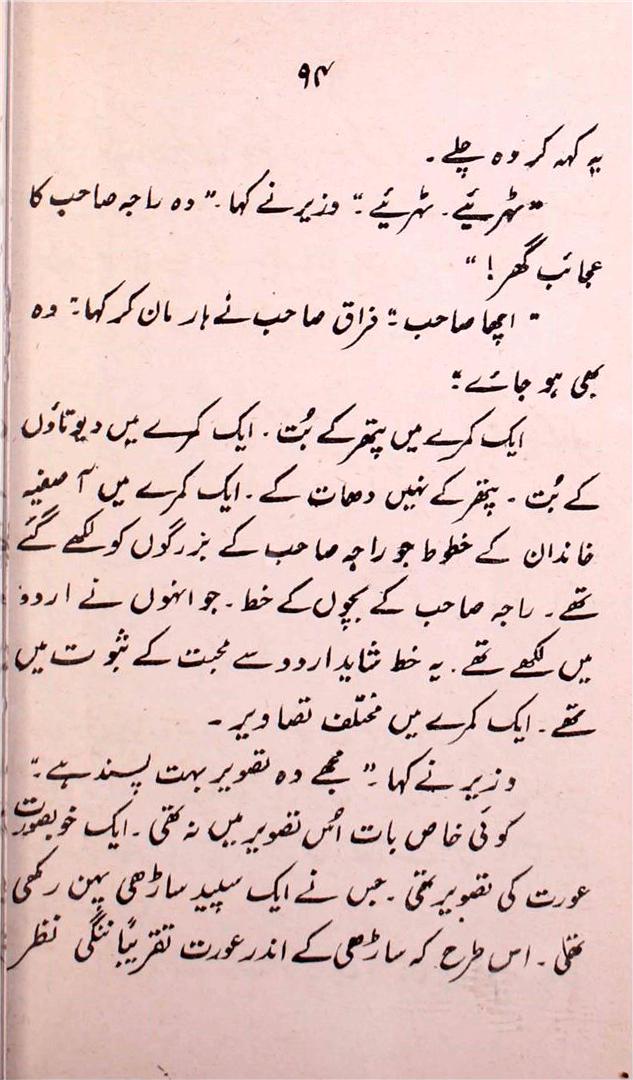 ۹۴
یہ کہہ کر وہ چلے۔
"ٹہرئیے۔ ٹہرئیے۔" وزیر نے کہا۔" وہ راجہ صاحب کا
عجائب گھر!"
"اچھا صاحب۔" فراق صاحب نے ہار مان کر کہا۔" وہ
بھی ہو جائے۔"
ایک کمرے میں پتھر کے بُت۔ ایک کمرے میں دیوتاؤں
کے بُت۔ پتھر کے نہیں دھات کے۔ ایک کمرے میں آصفیہ
خاندان کے خطوط جو راجہ صاحب کے بزرگوں کو لکھے گئے
تھے۔ راجہ صاحب کے بچوں کے خط۔ جو انہوں نے اردو
میں لکھے تھے۔ یہ خط شاید اردو سے محبت کے ثبوت میں
تھے۔ ایک کمرے میں مختلف تصاویر۔
وزیر نے کہا۔" مجھے وہ تصویر بہت پسند ہے۔"
کوئی خاص بات اُس تصویر میں نہ تھی۔ ایک خوبصورت
عورت کی تصویر تھی۔ جس نے ایک سپید ساڑھی پہن رکھی
تھی۔ اس طرح کہ ساڑھی کے اندر عورت تقریباً ننگی نظر